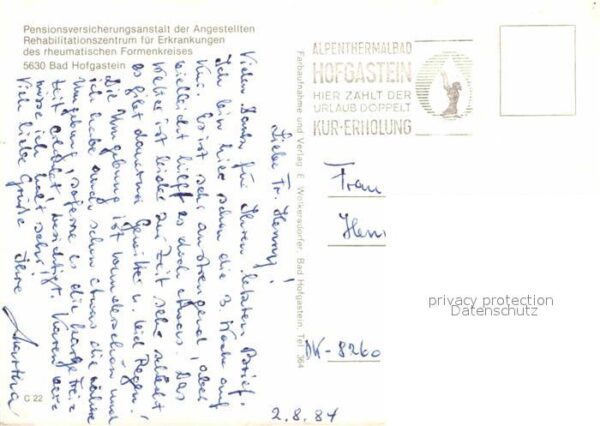 Pensionsversicherungsanstalt der Angestellten
Rehabilitationszentrum für Erkrankungen
des rheumatischen Formenkreises
5630 Bad Hofgastein
Liebe Fr. Henny!
Vielen Dank für Ihren letzten Brief.
Ich bin hier schon die 3. Woche auf
Kur. Es ist sehr anstrengend, aber
vielleicht hilft es doch etwas. Das
Wetter ist leider zur Zeit sehr schlecht
es gibt dauernd Gewitter u. viel Regen!
Die Umgebung ist wunderschön und
ich habe auch schon etwas die nähere
Umgebung, soferne es die karge Frei-
zeit erlaubt, besichtigt.
misse ich halt sehr!
Viele liebe Grüße Ihre
Martina
C 22
Farbaufnahme und Verlag E. Wolkersdorfer, Bad Hofgastein, Tel. 364
ALPENTHERMALBAD
HOFGASTEIN
HIER ZÄHLT DER
URLAUB DOPPELT
KUR-ERHOLUNG
Frau
Henn
DK-8260
2.8.84
privacy protection
Datenschutz